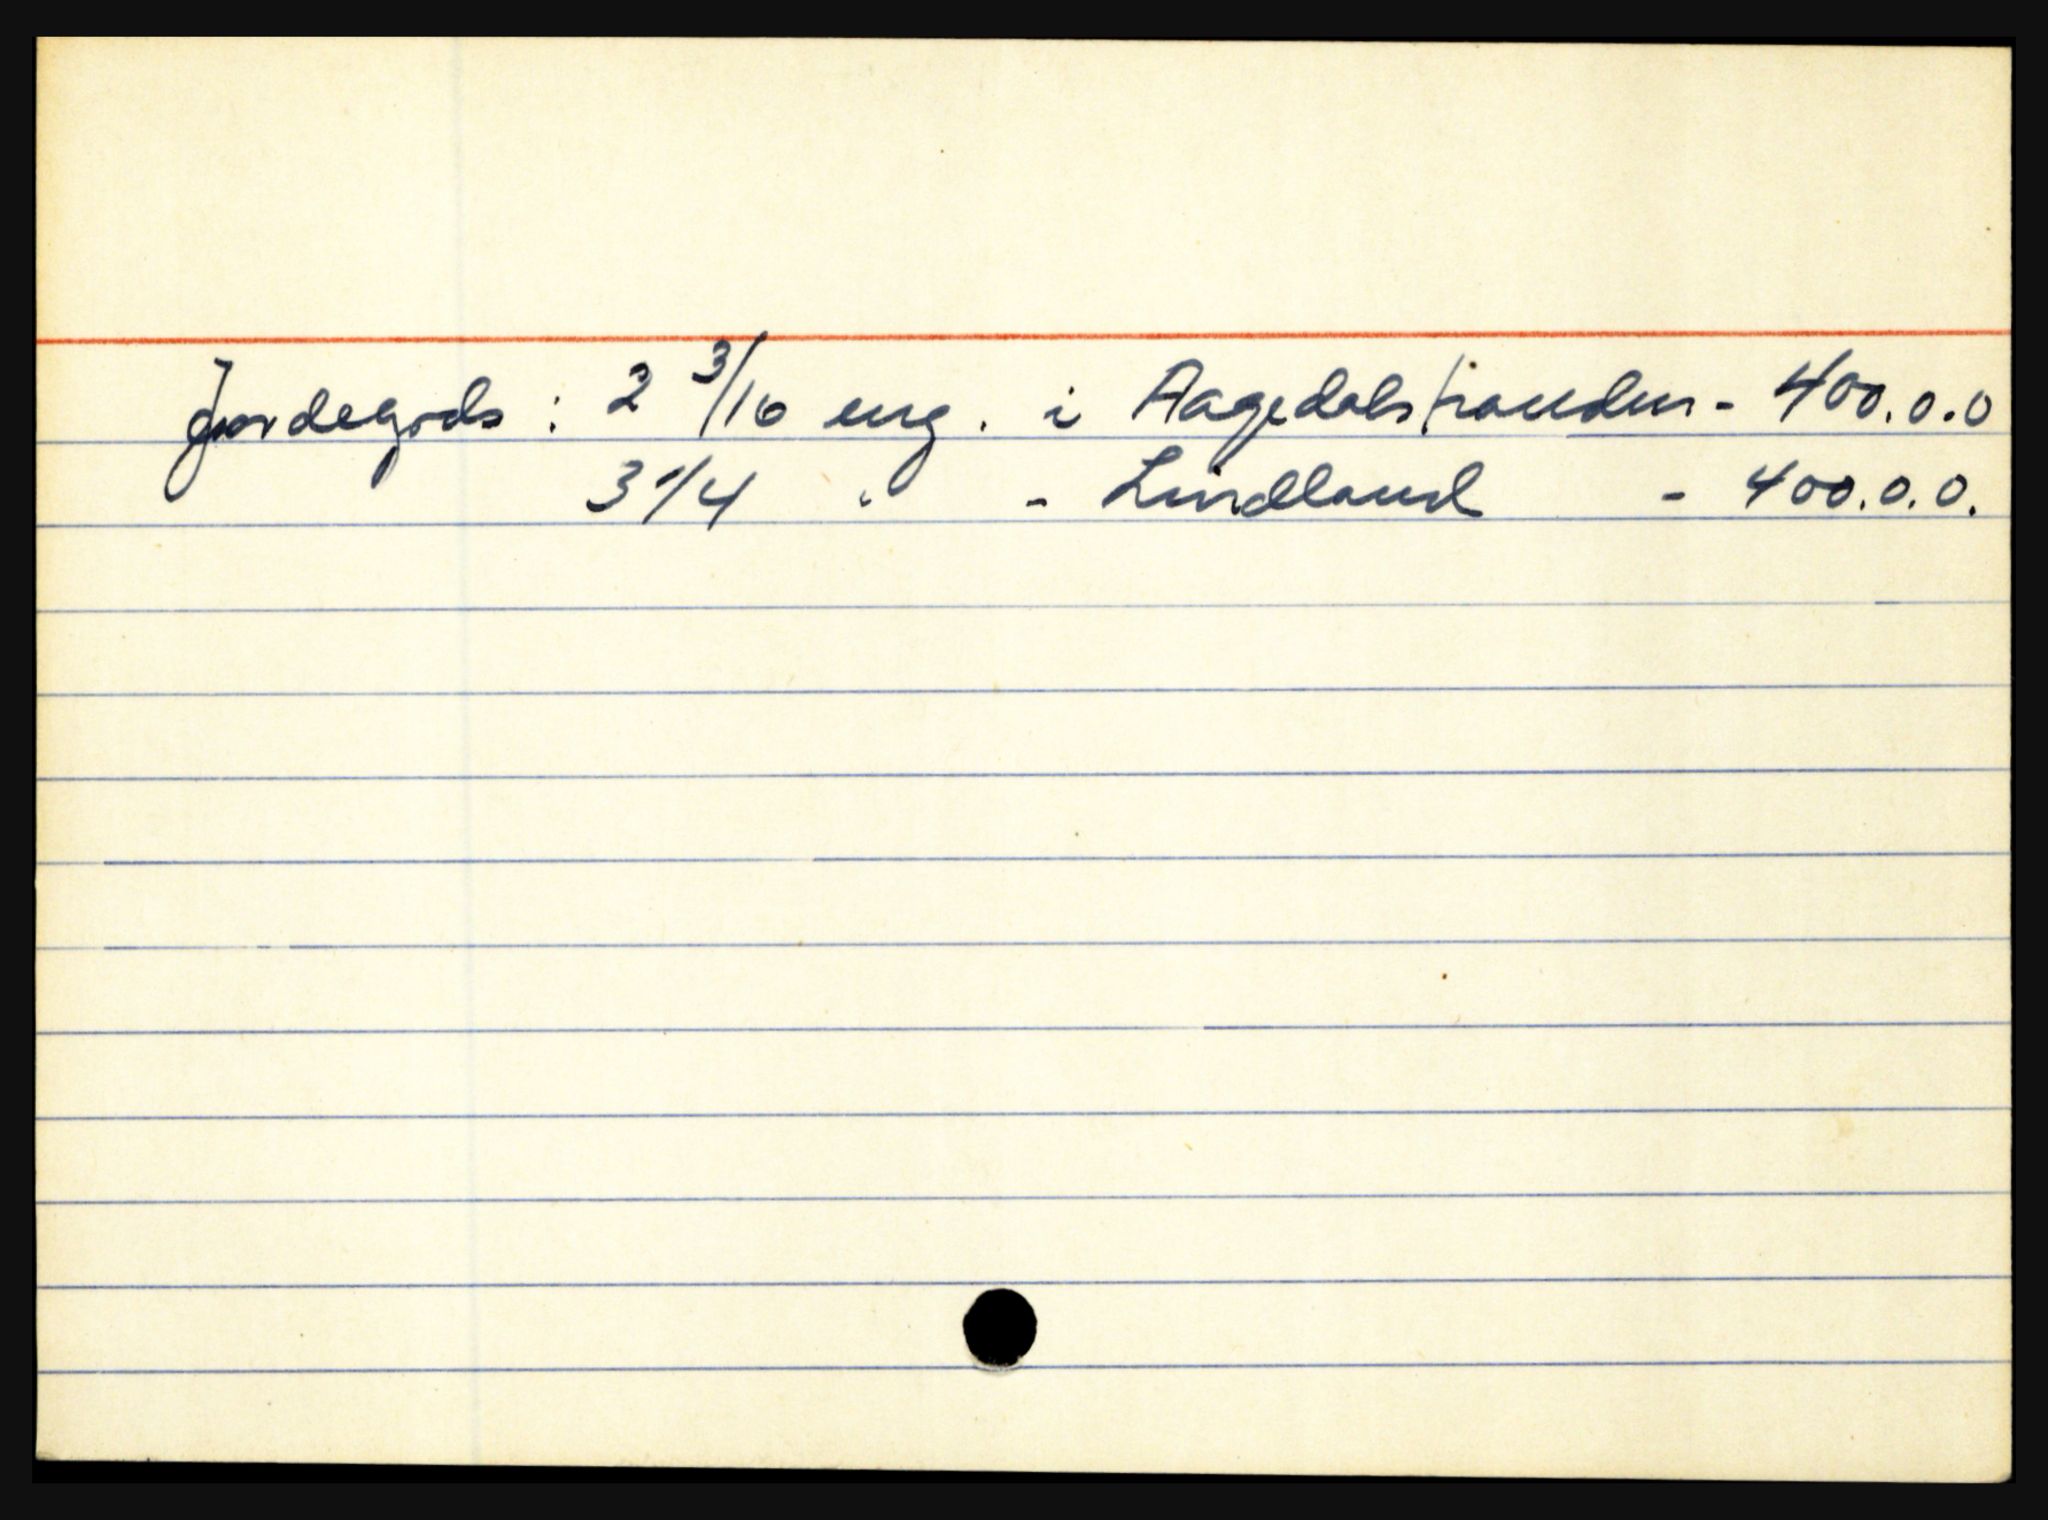 Jordegods : 2 3/16 eng. i Aagedalstranden - 400.0.0
3 1/4 " - Lindland - 400.0.0.